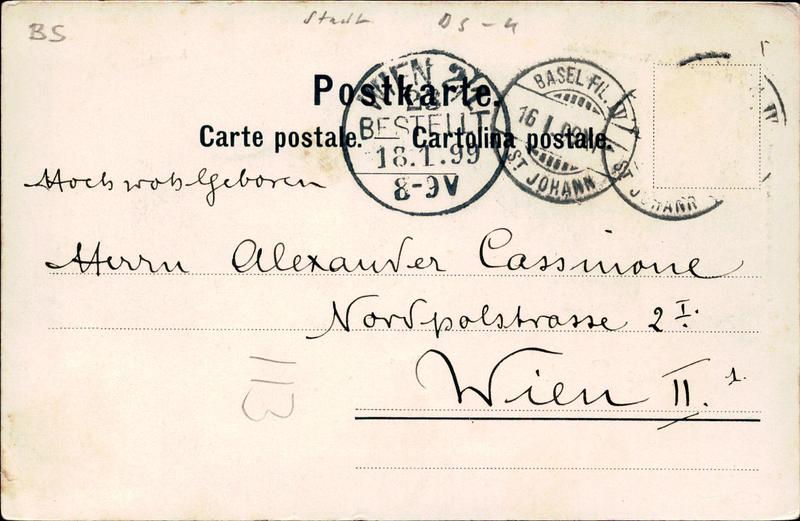 BS
Stadt DS-4
Postkarte.
Carte postale. Cartolina postale.
WIEN 2/
BESTELLT
18.1.99
8-9V
BASEL FIL.
16 I
ST JOHANN
ST JOHANN
Hochwohlgeboren
Herrn Alexander Cassinone
Nordpolstrasse 2 I.
Wien II. 1.
113